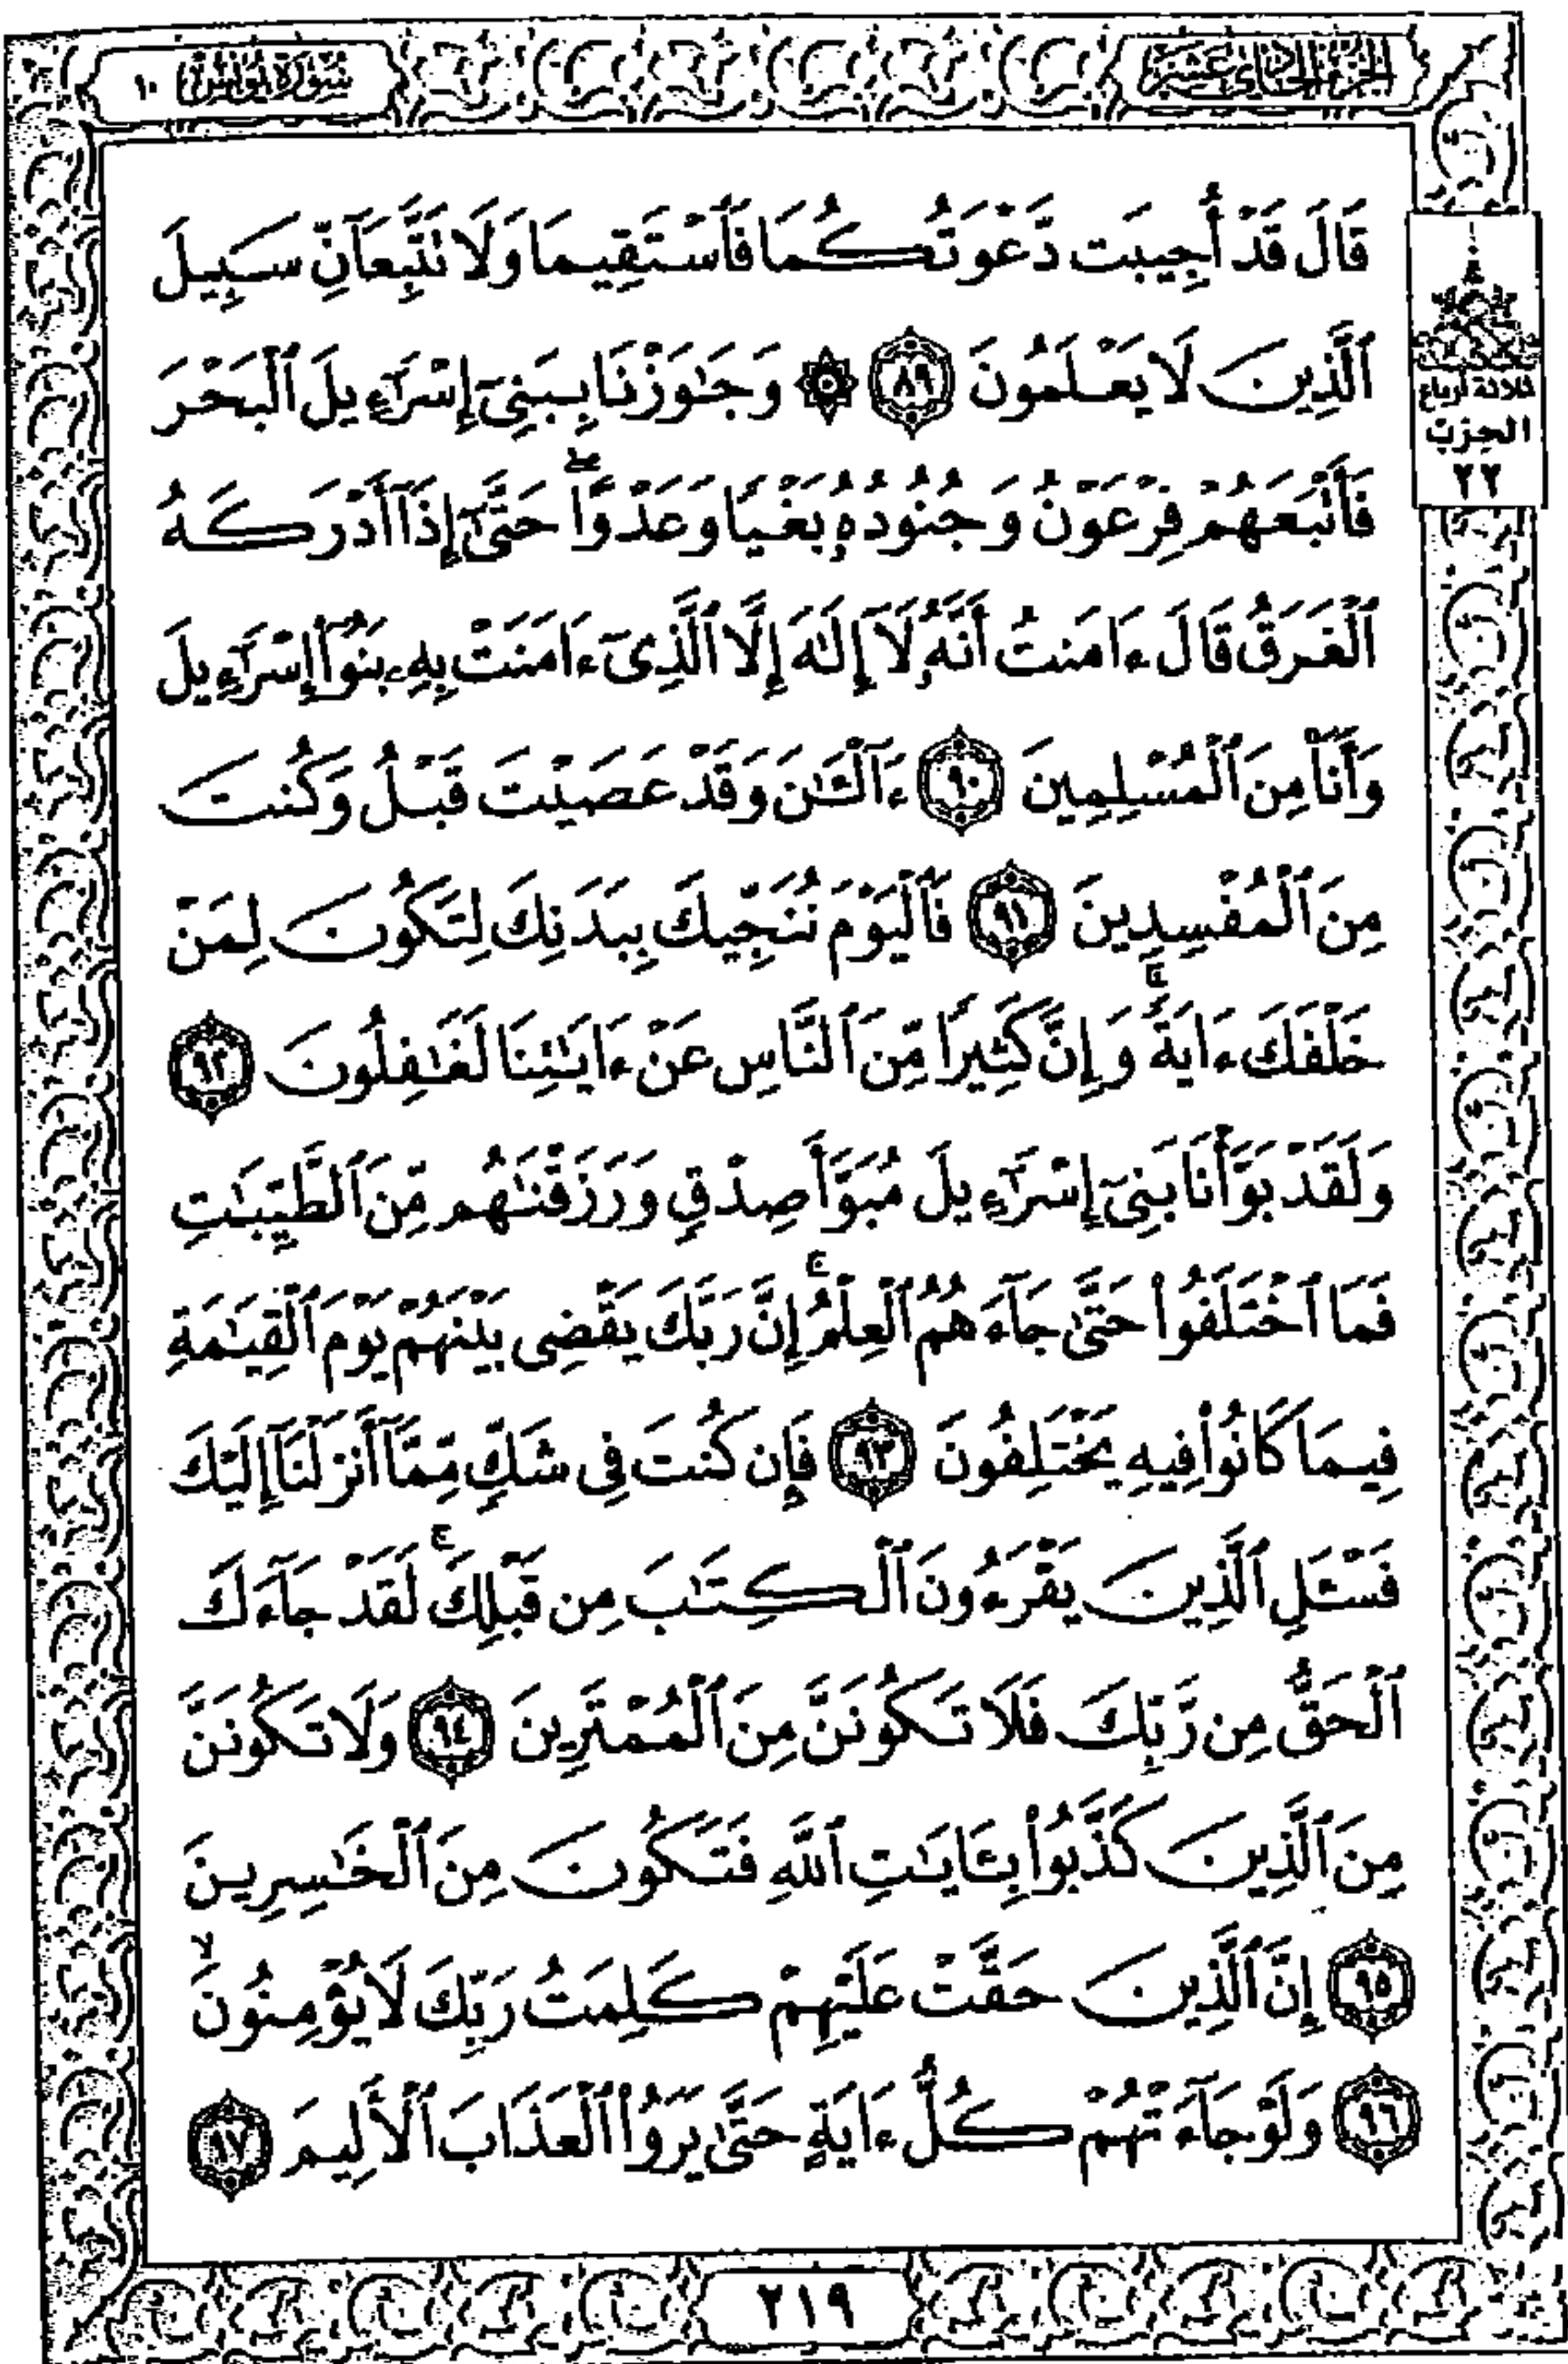 الجزء الحادي عشر
سورة يونس ١٠
قَالَ قَدْ أُجِيبَت دَّعْوَتُكُمَا فَٱسْتَقِيمَا وَلَا تَتَّبِعَآنِّ سَبِيلَ
ٱلَّذِينَ لَا يَعْلَمُونَ ٨٩ ۞ وَجَٰوَزْنَا بِبَنِىٓ إِسْرَٰٓءِيلَ ٱلْبَحْرَ
فَأَتْبَعَهُمْ فِرْعَوْنُ وَجُنُودُهُۥ بَغْيًا وَعَدْوًا ۖ حَتَّىٰٓ إِذَآ أَدْرَكَهُ
ٱلْغَرَقُ قَالَ ءَامَنتُ أَنَّهُۥ لَآ إِلَٰهَ إِلَّا ٱلَّذِىٓ ءَامَنَتْ بِهِۦ بَنُوٓا۟ إِسْرَٰٓءِيلَ
وَأَنَا۠ مِنَ ٱلْمُسْلِمِينَ ٩٠ ءَآلْـَٰٔنَ وَقَدْ عَصَيْتَ قَبْلُ وَكُنتَ
مِنَ ٱلْمُفْسِدِينَ ٩١ فَٱلْيَوْمَ نُنَجِّيكَ بِبَدَنِكَ لِتَكُونَ لِمَنْ
خَلْفَكَ ءَايَةً ۚ وَإِنَّ كَثِيرًا مِّنَ ٱلنَّاسِ عَنْ ءَايَٰتِنَا لَغَٰفِلُونَ ٩٢
وَلَقَدْ بَوَّأْنَا بَنِىٓ إِسْرَٰٓءِيلَ مُبَوَّأَ صِدْقٍ وَرَزَقْنَٰهُم مِّنَ ٱلطَّيِّبَٰتِ
فَمَا ٱخْتَلَفُوا۟ حَتَّىٰ جَآءَهُمُ ٱلْعِلْمُ ۚ إِنَّ رَبَّكَ يَقْضِى بَيْنَهُمْ يَوْمَ ٱلْقِيَٰمَةِ
فِيمَا كَانُوا۟ فِيهِ يَخْتَلِفُونَ ٩٣ فَإِن كُنتَ فِى شَكٍّ مِّمَّآ أَنزَلْنَآ إِلَيْكَ
فَسْـَٔلِ ٱلَّذِينَ يَقْرَءُونَ ٱلْكِتَٰبَ مِن قَبْلِكَ ۚ لَقَدْ جَآءَكَ
ٱلْحَقُّ مِن رَّبِّكَ فَلَا تَكُونَنَّ مِنَ ٱلْمُمْتَرِينَ ٩٤ وَلَا تَكُونَنَّ
مِنَ ٱلَّذِينَ كَذَّبُوا۟ بِـَٔايَٰتِ ٱللَّهِ فَتَكُونَ مِنَ ٱلْخَٰسِرِينَ
٩٥ إِنَّ ٱلَّذِينَ حَقَّتْ عَلَيْهِمْ كَلِمَتُ رَبِّكَ لَا يُؤْمِنُونَ ۙ
٩٦ وَلَوْ جَآءَتْهُمْ كُلُّ ءَايَةٍ حَتَّىٰ يَرَوُا۟ ٱلْعَذَابَ ٱلْأَلِيمَ ٩٧
ثلاثة أرباع
الحزب
٢٢
٢١٩